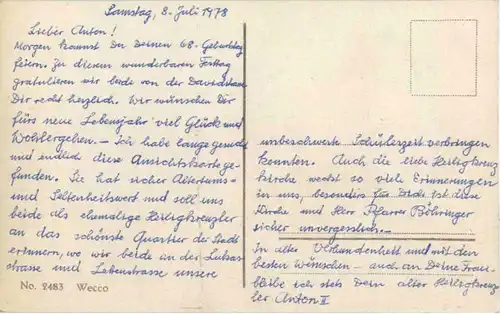 Samstag, 8. Juli 1978
Lieber Anton!
Morgen kannst Du Deinen 68. Geburtstag
feiern. Zu diesem wunderbaren Festtag
gratulieren wir beide von der Davidstrasse
Dir recht herzlich. Wir wünschen Dir
fürs neue Lebensjahr viel Glück und
Wohlergehen. – Ich habe lange gesucht
und endlich diese Ansichtskarte ge-
funden. Sie hat sicher Altertums-
und Seltenheitswert und soll uns
beide als ehemalige Heiligkreuzler
an das schönste Quartier der Stadt
erinnern, wo wir beide an der Lukas-
strasse und Lebenstrasse unsere
No. 2483 Wecco
unbeschwerte Schülerzeit verbringen
konnten. Auch die liebe Heiligkreuz
kirche weckt so viele Erinnerungen
in uns, besonders für Dich ist diese
Kirche und Herr Pfarrer Böhringer
sicher unvergesslich.
In alter Verbundenheit und mit den
besten Wünschen – auch an Deine Frau –
bleibe ich stets Dein alter Heiligkreuz-
ler Anton II